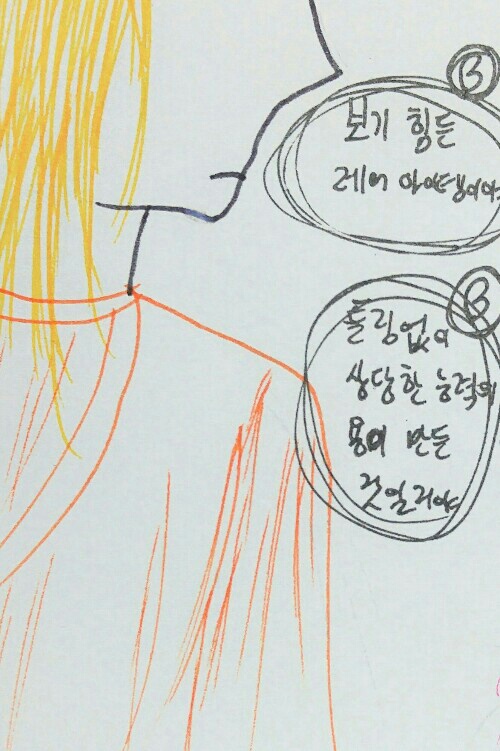 B
보기 힘든
레어 아이템이야
B
틀림없이
상당한 능력의
용이 만든
것일거야